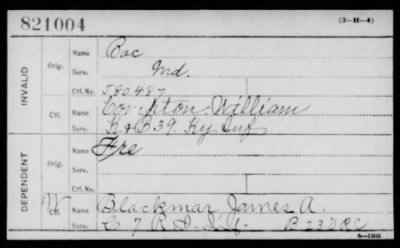 821004 (3-H-4)
INVALID
Orig. Name Bac
Serv. Md.
Ctf. No. 580487
Ctf. Name Covington William
Serv. K & B 39. Ky. Inf
DEPENDENT
Orig. Name Fre
Serv.
W Ctf. Name Blackmar, James A.
Serv. C 7 R. I. Inf. B 23